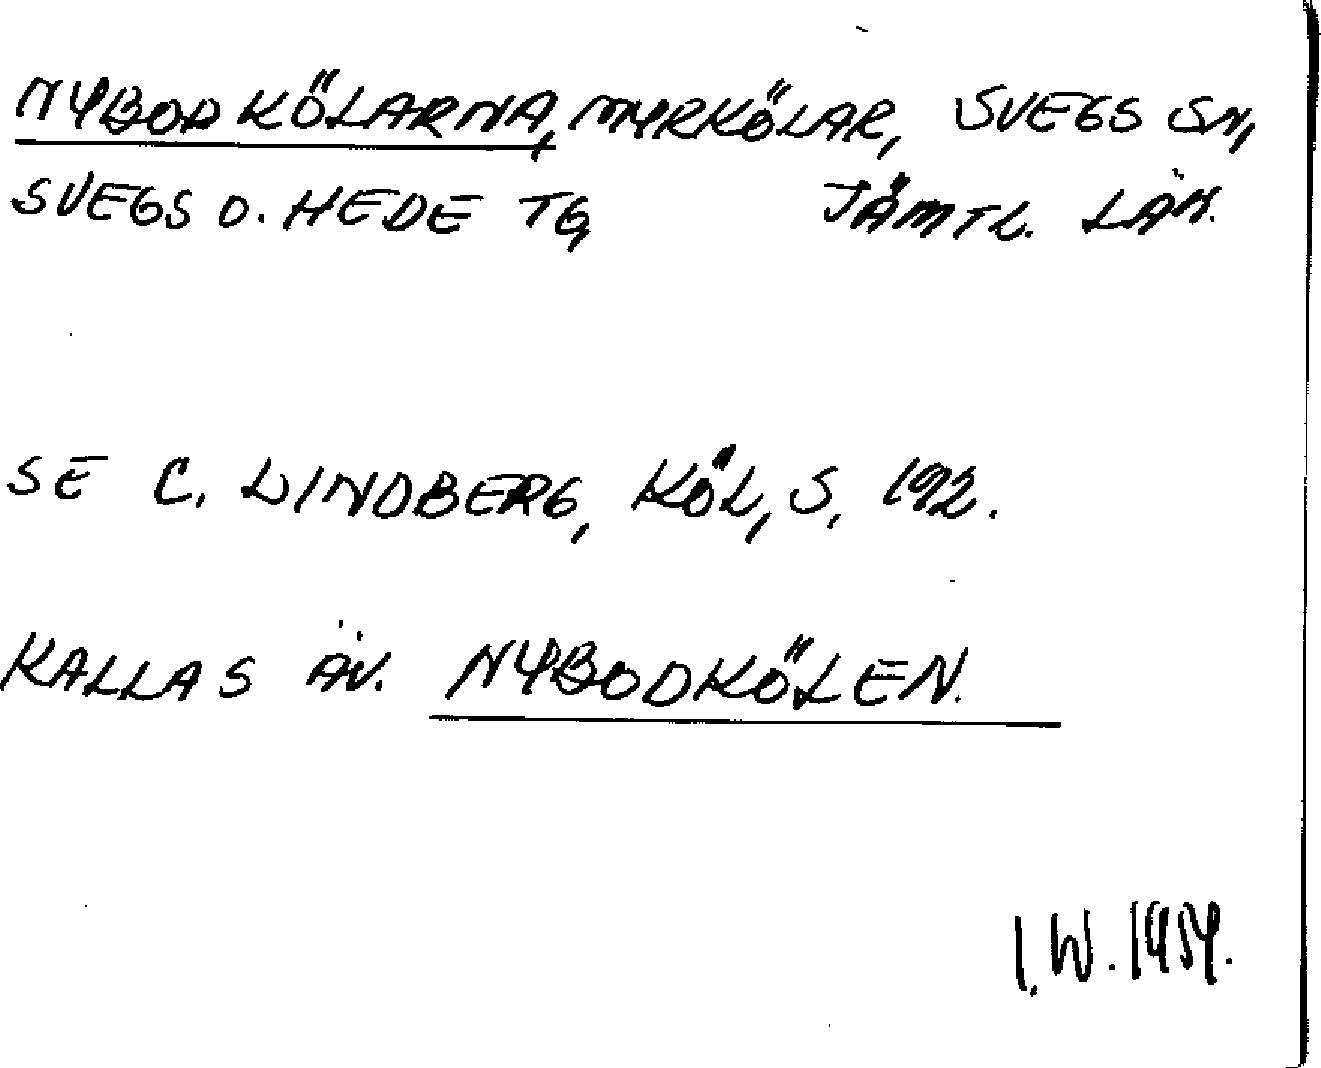 NYBODKÖLARNA, MYRKÖLAR, SVEGS SN,
SVEGS O. HEDE TG, JÄMTL. LÄN.
SE C. LINDBERG, KÖL, S. 192.
KALLAS ÄV. NYBODKÖLEN.
I.W.